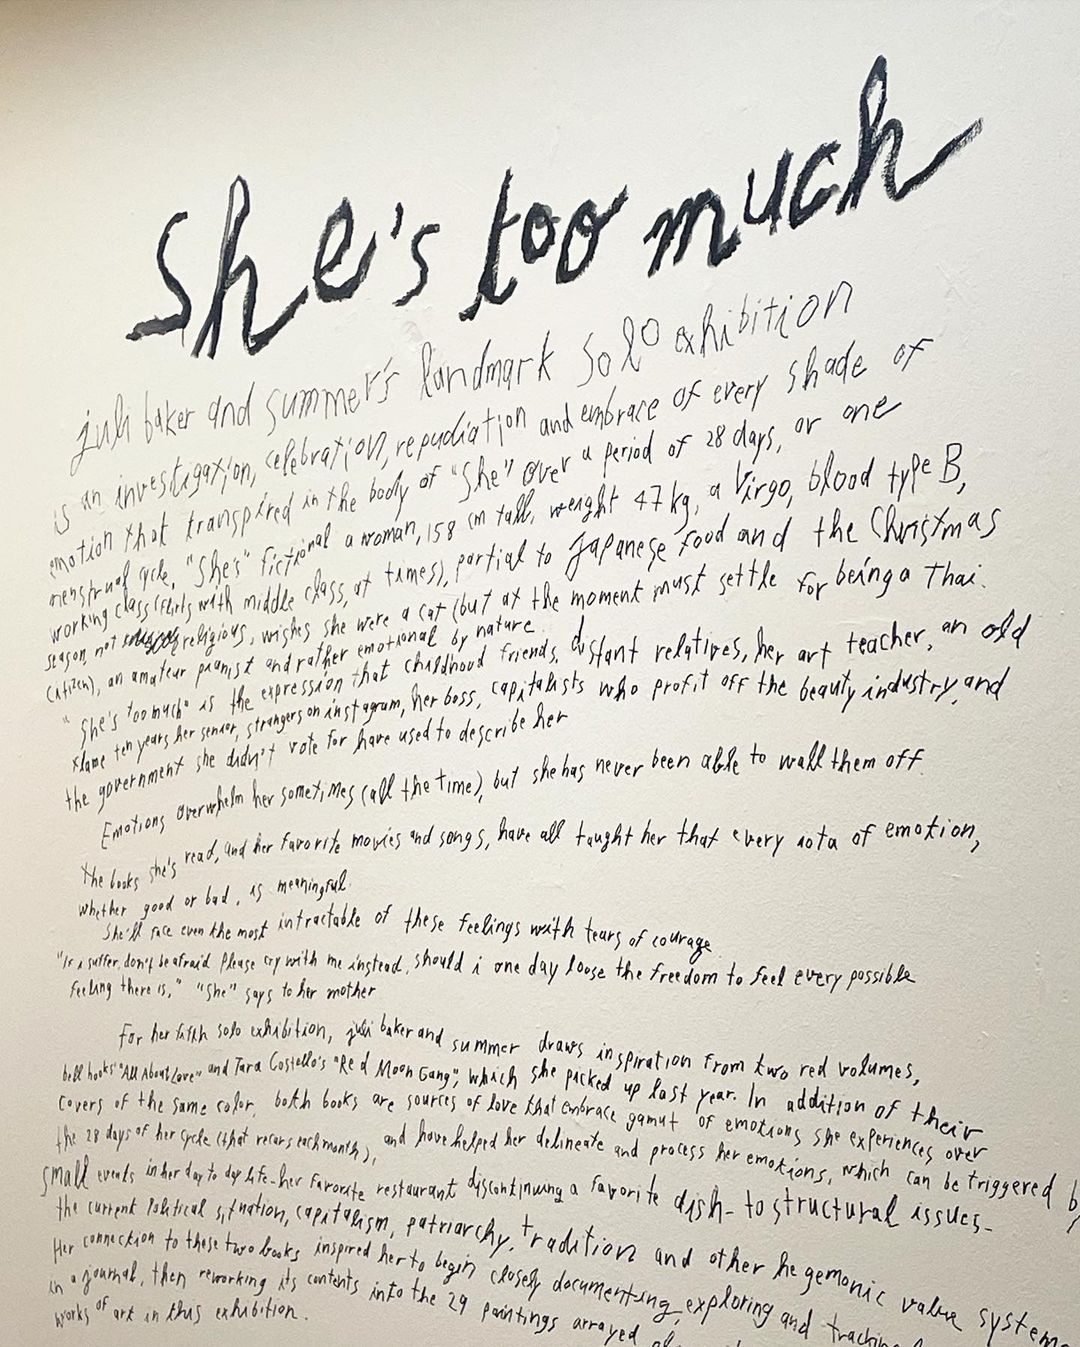 She's too much
juli baker and summer's landmark solo exhibition
is an investigation, celebration, repudiation and embrace of every shade of
emotion that transpired in the body of "She" over a period of 28 days, or one
menstrual cycle. "She's" fictional a woman, 158 cm tall, weight 47 kg, a Virgo, blood type B,
working class (flirts with middle class, at times), partial to Japanese food and the Christmas
season, not religious, wishes she were a cat (but at the moment must settle for being a Thai
citizen), an amateur pianist and rather emotional by nature.
"She's too much" is the expression that childhood friends, distant relatives, her art teacher, an old
flame ten years her senior, strangers on instagram, her boss, capitalists who profit off the beauty industry, and
the government she didn't vote for have used to describe her
Emotions overwhelm her sometimes (all the time), but she has never been able to wall them off.
The books she's read, and her favorite movies and songs, have all taught her that every iota of emotion,
whether good or bad, is meaningful.
She'll face even the most intractable of these feelings with tears of courage
"If i suffer, don't be afraid. Please cry with me instead, should i one day loose the freedom to feel every possible
feeling there is," "She" says to her mother
For her fifth solo exhibition, juli baker and summer draws inspiration from two red volumes,
bell hooks' "All About Love" and Tara Costello's "Red Moon Gang", which she picked up last year. In addition of their
covers of the same color, both books are sources of love that embrace gamut of emotions she experiences over
the 28 days of her cycle (that recurs each month), and have helped her delineate and process her emotions, which can be triggered by
small events in her day to day life - her favorite restaurant discontinuing a favorite dish - to structural issues -
the current political situation, capitalism, patriarchy, tradition and other hegemonic value systems
Her connection to these two books inspired her to begin closely documenting, exploring and tracking
in a journal, then reworking its contents into the 29 paintings arrayed
works of art in this exhibition.